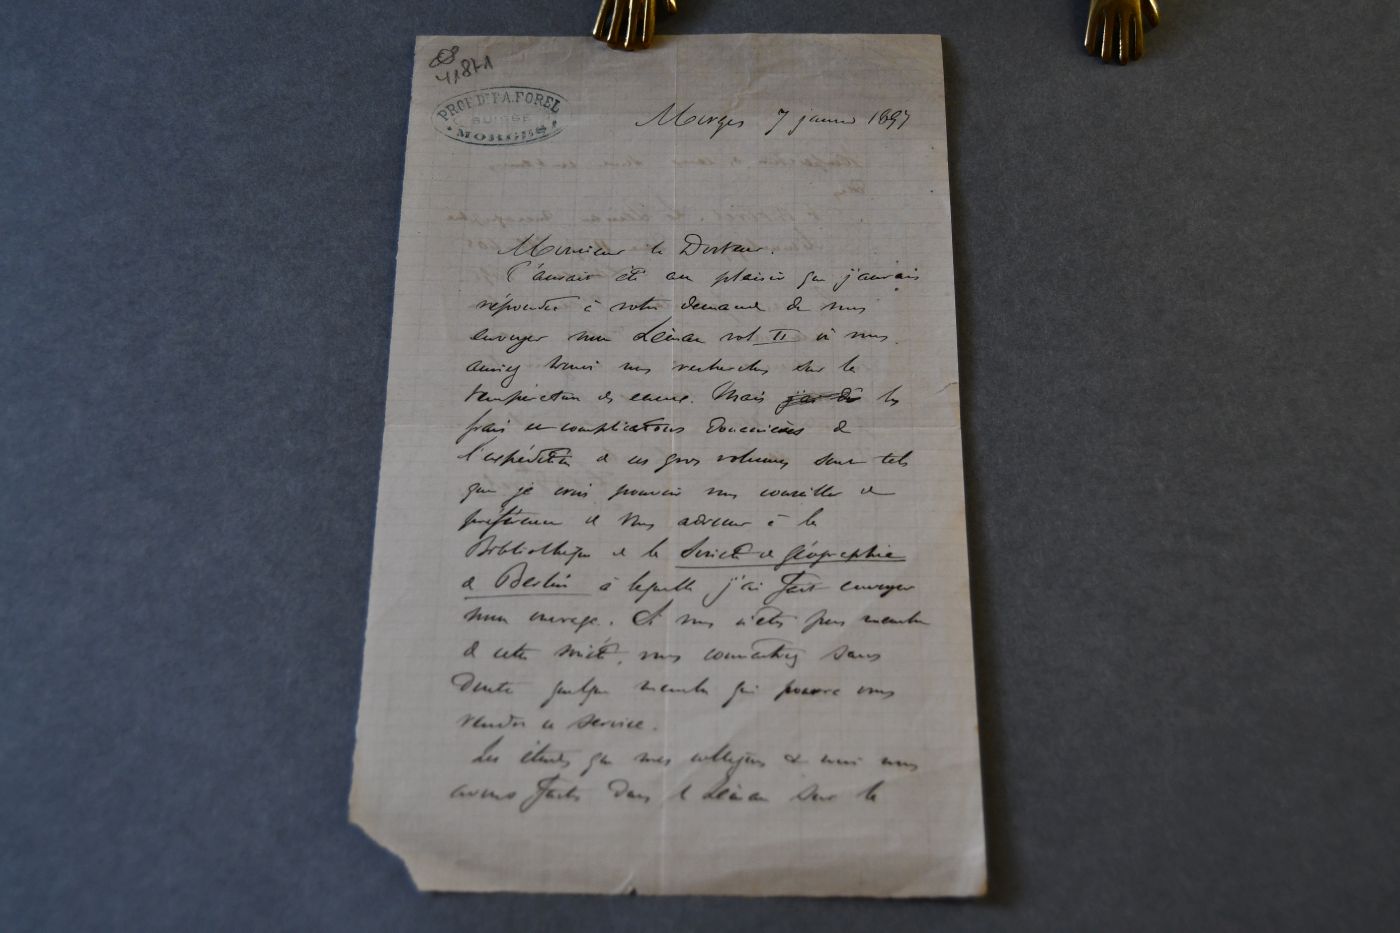 41871
PROF. Dr F. A. FOREL
SUISSE
MORGES
Morges 7 janvier 1897
Monsieur le Docteur.
C'aurait été un plaisir que j'aurais
répondu à votre demande de vous
envoyer mon Léman vol II où vous
auriez trouvé mes recherches sur la
température des eaux. Mais j'ai dû les
frais et complications douanières de
l'expédition de ces gros volumes sont tels
que je crois pouvoir vous conseiller de
préférence de vous adresser à la
Bibliothèque de la Société de géographie
de Berlin à laquelle j'ai fait envoyer
mon ouvrage. Si vous n'êtes pas membre
de cette société, vous connaîtrez sans
doute quelque membre qui pourra vous
rendre ce service.
Les études que mes collègues & moi nous
avons faites dans le Léman sur la